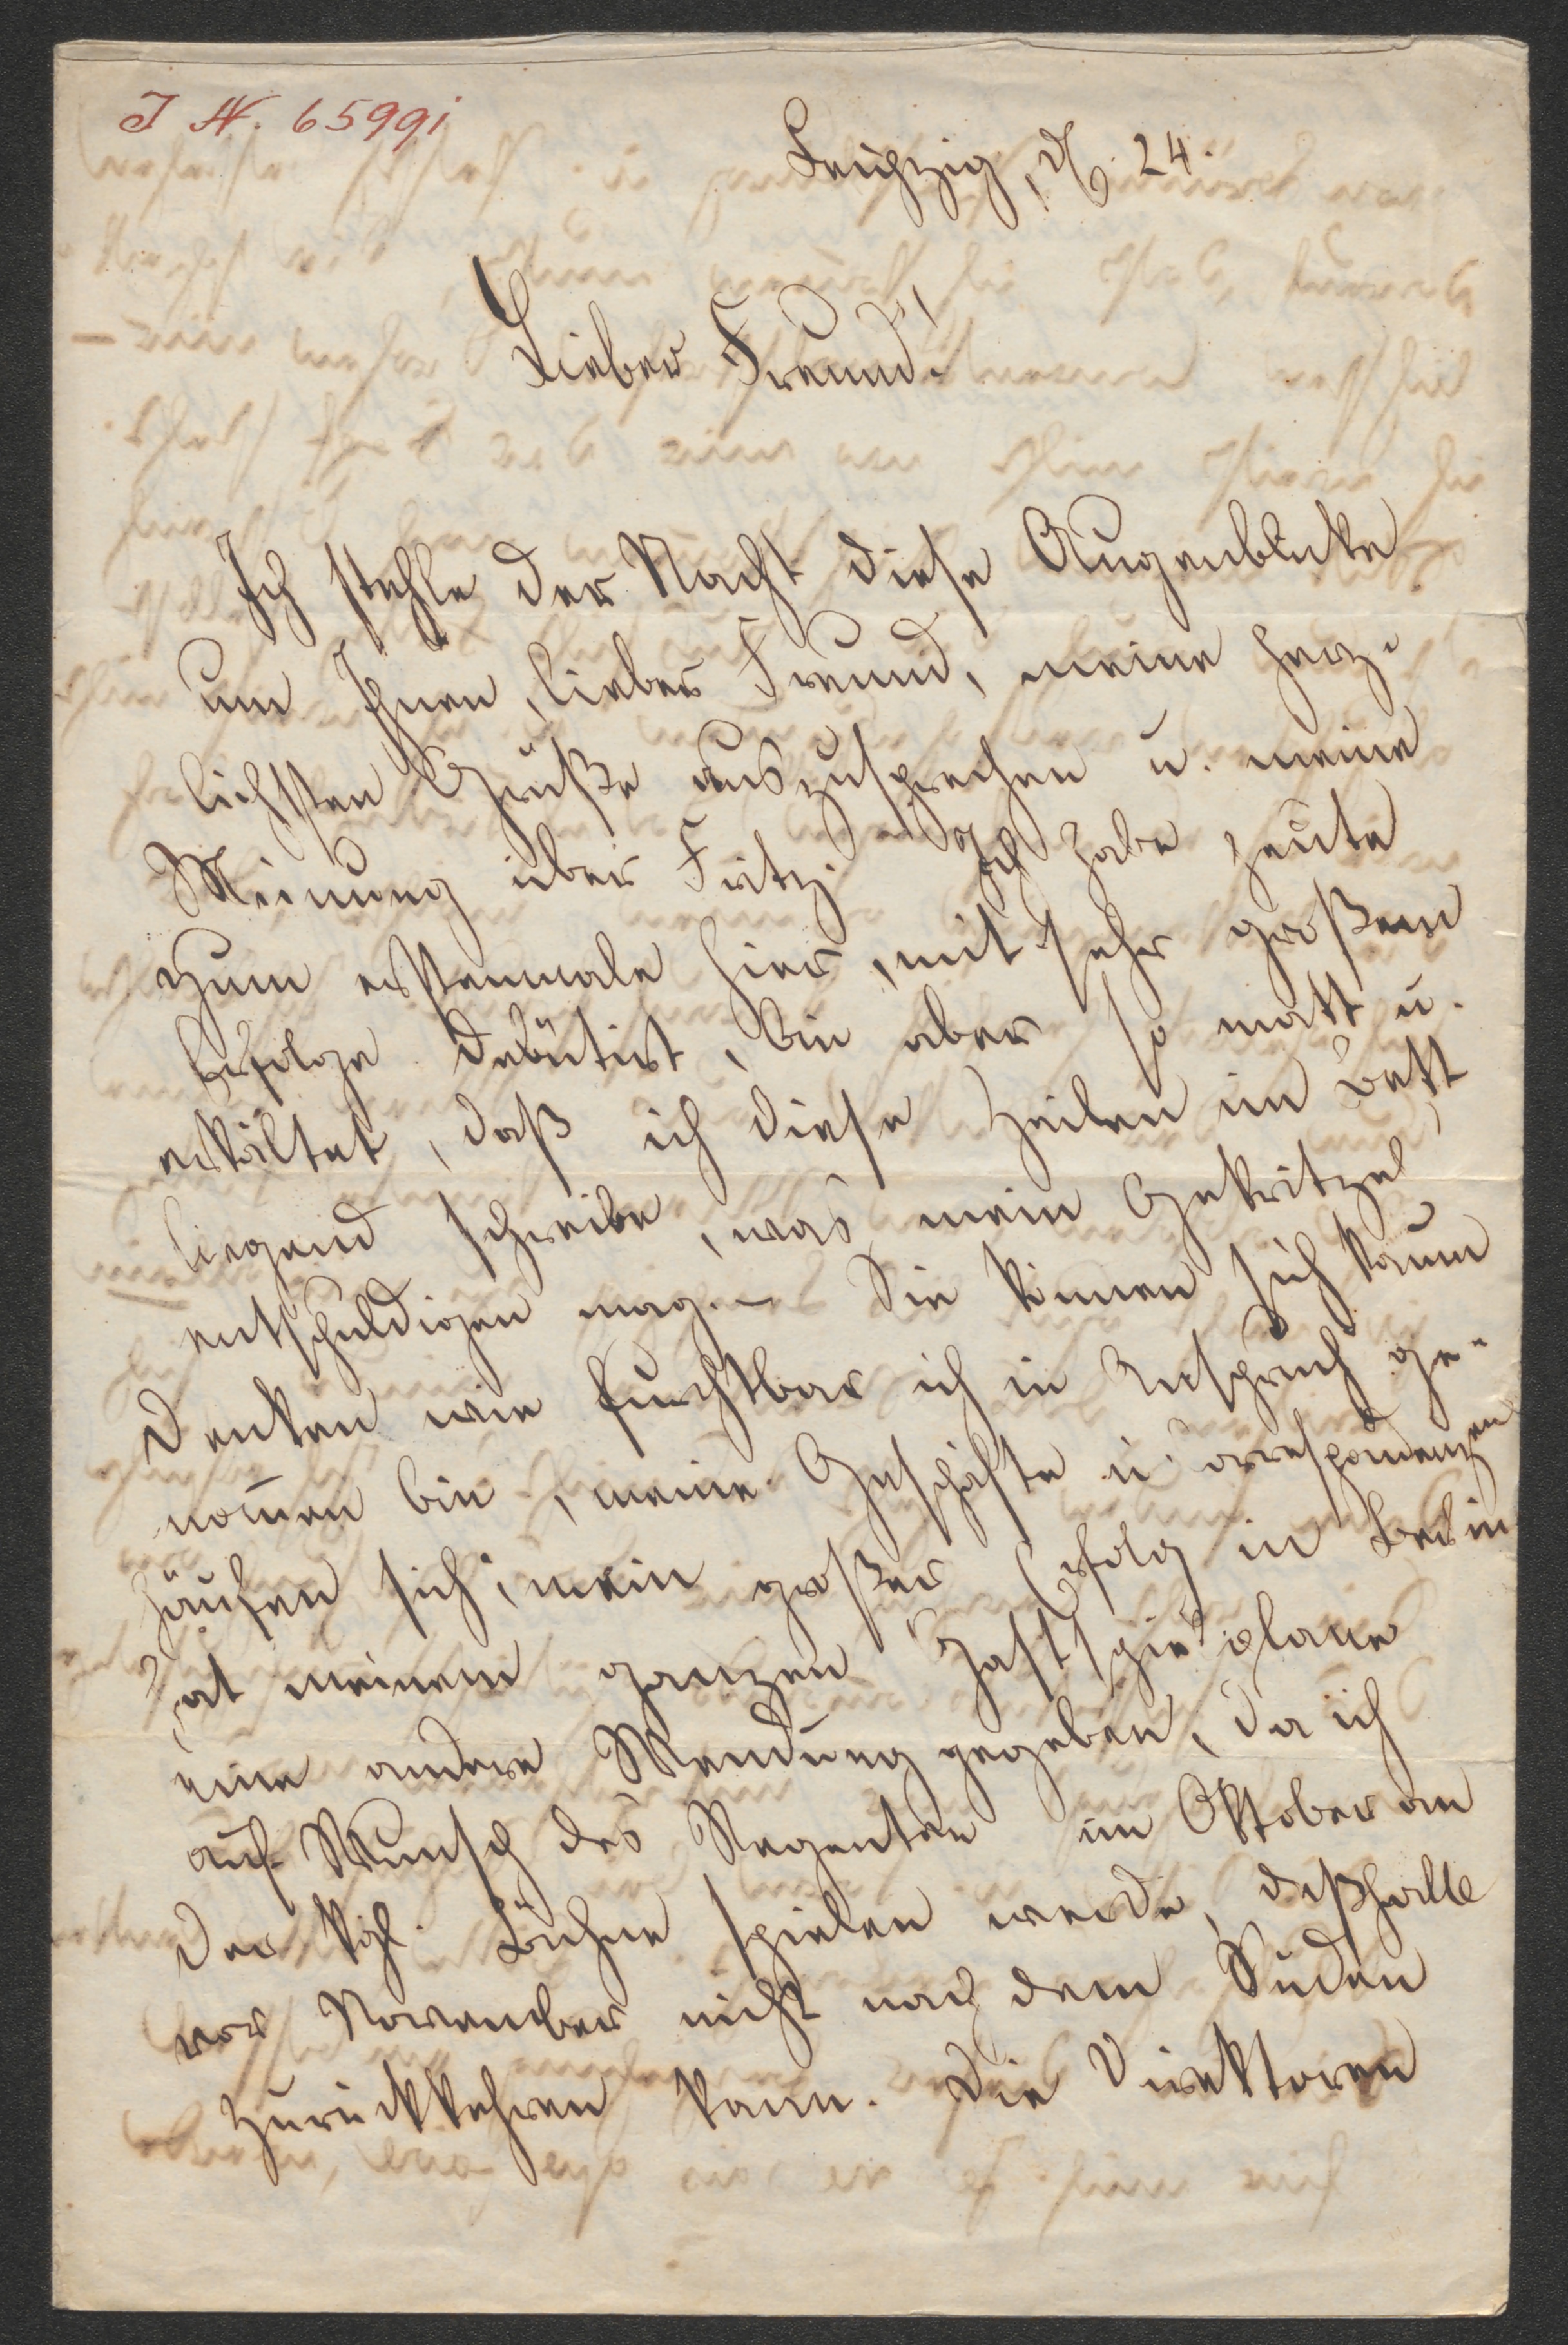 I N. 65991
Leipzig, d. 24.
Lieber Freund!
Ich stehle der Nacht diese Augenblicke
um Ihnen, lieber Freund, meine herz-
lichsten Grüße auszusprechen u. meine
Meinung über Fritz. Ich habe heute
zum erstenmale hier, mit sehr großem
Erfolge debütirt, bin aber so matt u.
erkältet, daß ich diese Zeilen im Bett
liegend schreibe, was mein Gekritzel
entschuldigen mag. – Sie können sich kaum
denken wie furchtbar ich in Anspruch ge-
nom̅en bin, meine Geschäfte u. Correspondenzen
häufen sich; mein großer Erfolg in Berlin
hat meinem ganzen Gastspielplane
eine andere Wendung gegeben, da ich
auf Wunsch des Regenten im Oktober an
der kgl. Bühne spielen werde, deßhalb
vor November nicht nach dem Süden
zurückkehren kann. Die Direktoren